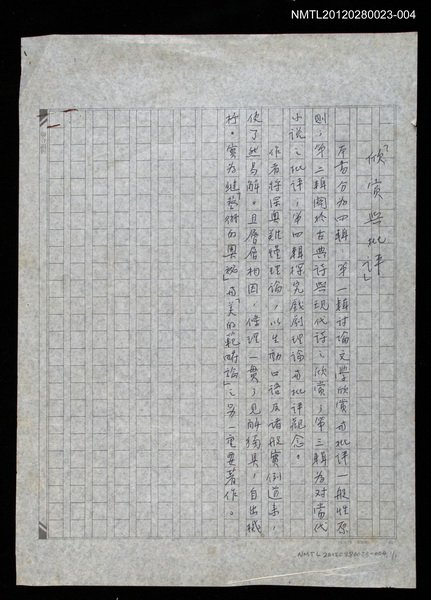 NMTL20120280023-004
「欣賞與批評」
本書分為四輯，第一輯討論文學欣賞與批評一般性原
則；第二輯關於古典詩與現代詩之欣賞；第三輯為對當代
小說之批評；第四輯探究戲劇理論與批評觀念。
作者將深奧難懂理論，以生動口語及諸般實例道來，
使了然易解。且層層相因，條理一貫；見解獨具，自出機
杼。實為繼「藝術的奧秘」與「美的範疇論」之另一重要著作。
NMTL20120280023-004 1/1